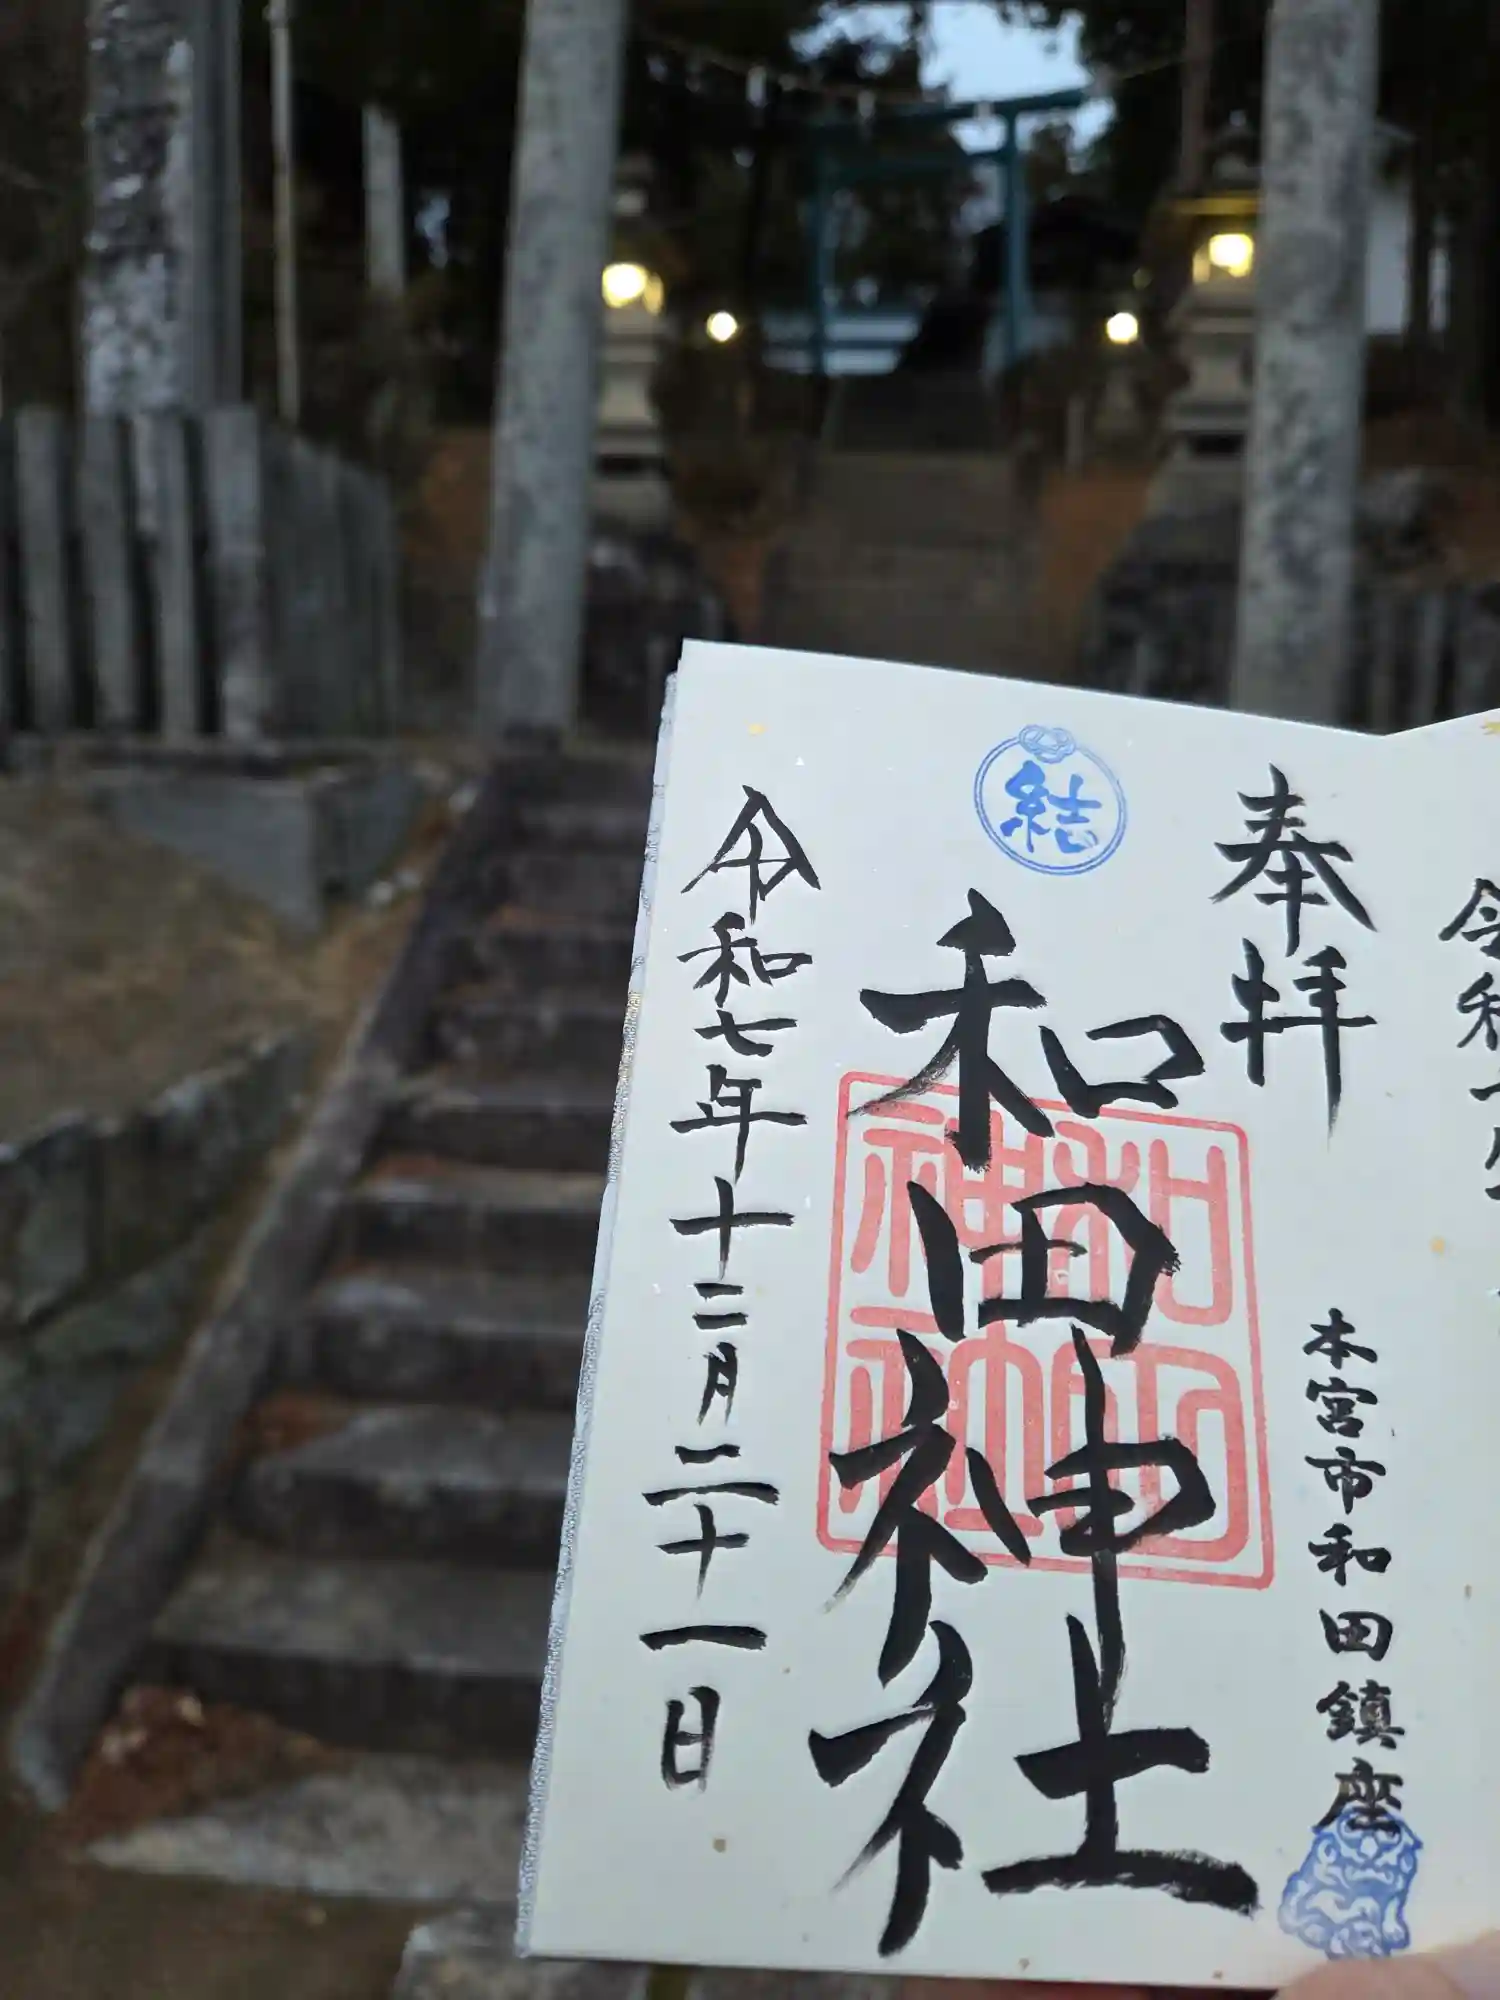 奉拝
本宮市和田鎮座
結
和田神社
和田
神社
令和七年十二月二十一日